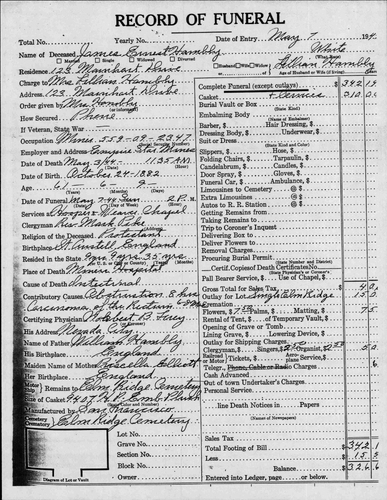 RECORD OF FUNERAL
Total No. Yearly No. Date of Entry May 7 194
Name of Deceased James Ernest Hambly White
Married Single Widowed Divorced (What Race)
Residence 123 Mainhart Drive Husband Wife Widow of Lillian Hambly
Charge to Mrs Lillian Hambly Age of Husband or Wife (if living)
Address 123 Mainhart Drive
Order given by Mrs Hambly
How Secured Phone
If Veteran, State War
Occupation Miner 559-09-2347
Employer and Address Empire Star Mines
Date of Death May 3/44 11:35 A.M.
Date of Birth October 24-1882
Age 61 - 6 - 9
(Years) (Months) (Days)
Funeral Date May 7-44 2 P.M.
Services at Hooper & Weaver Chapel
Clergyman Rev Mark
Religion of the Deceased Protestant
Birthplace St Austell England
Resided in the State
Place of Death Miners Hospital
Cause of Death Intestinal
Contributory Causes Obstruction 8 hrs
Carcinoma of the Rectum
Certifying Physician Robert B.
His Address Nevada City
Name of Father William Hambly
His Birthplace England
Maiden Name of Mother Rosella Elliott
Her Birthplace England
Remains to Elm Ridge Cemetery
Size
Manufactured by San Francisco
Cemetery Elm Ridge Cemetery
Lot No.
Grave No.
Section No.
Block No.
Owner
Diagram of Lot or Vault
Complete Funeral (except outlays) $ 342
Casket $ 310
Burial Vault or Box
(State Kind)
Embalming Body
(Name of Embalmer)
Barber, $ Hair Dressing, $
Dressing Body, $ Underwear, $
Suit or Dress
(State Kind and Color)
Slippers, $ Hose, $
Folding Chairs, $ Tarpaulin, $
Candelabrum, $ Candles, $
Door Spray, $ Gloves, $
Funeral Car, $ Ambulance, $
Limousines to Cemetery @ $
Extra Limousines @ $
Autos to R. R. Station @ $
Getting Remains from
Taking Remains to
Trip to Coroner's Inquest
Delivering Box to
Deliver Flowers to
Removal Charges
Procuring Burial Permit
(State Number and District)
Certif. Copies of Death Certificate No.
(State Physician's or Coroner's)
Pall Bearer Service, $ Use of Chapel, $
Gross Total for Sales Tax $
Outlay for Lot Single Elm Ridge 15
Cremation
Flowers, $ Palms, $ Matting, $
Rental of Tent, $ of Temporary Vault, $
Opening of Grave or Tomb
Lining Grave, $ Lowering Device, $
Outlay for Shipping Charges
Clergyman, $ Singers, $ Organist, $
Tickets, $ Service, $
Telegr., Phone, Cable or Radio Charges
Cash Advanced
Out of town Undertaker's Charges
Personal Service
line Death Notices in Papers
(Names of Newspapers)
Sales Tax
Total Footing of Bill $ 342
Less $ 15
Balance $ 326
Entered into Ledger, page or below.